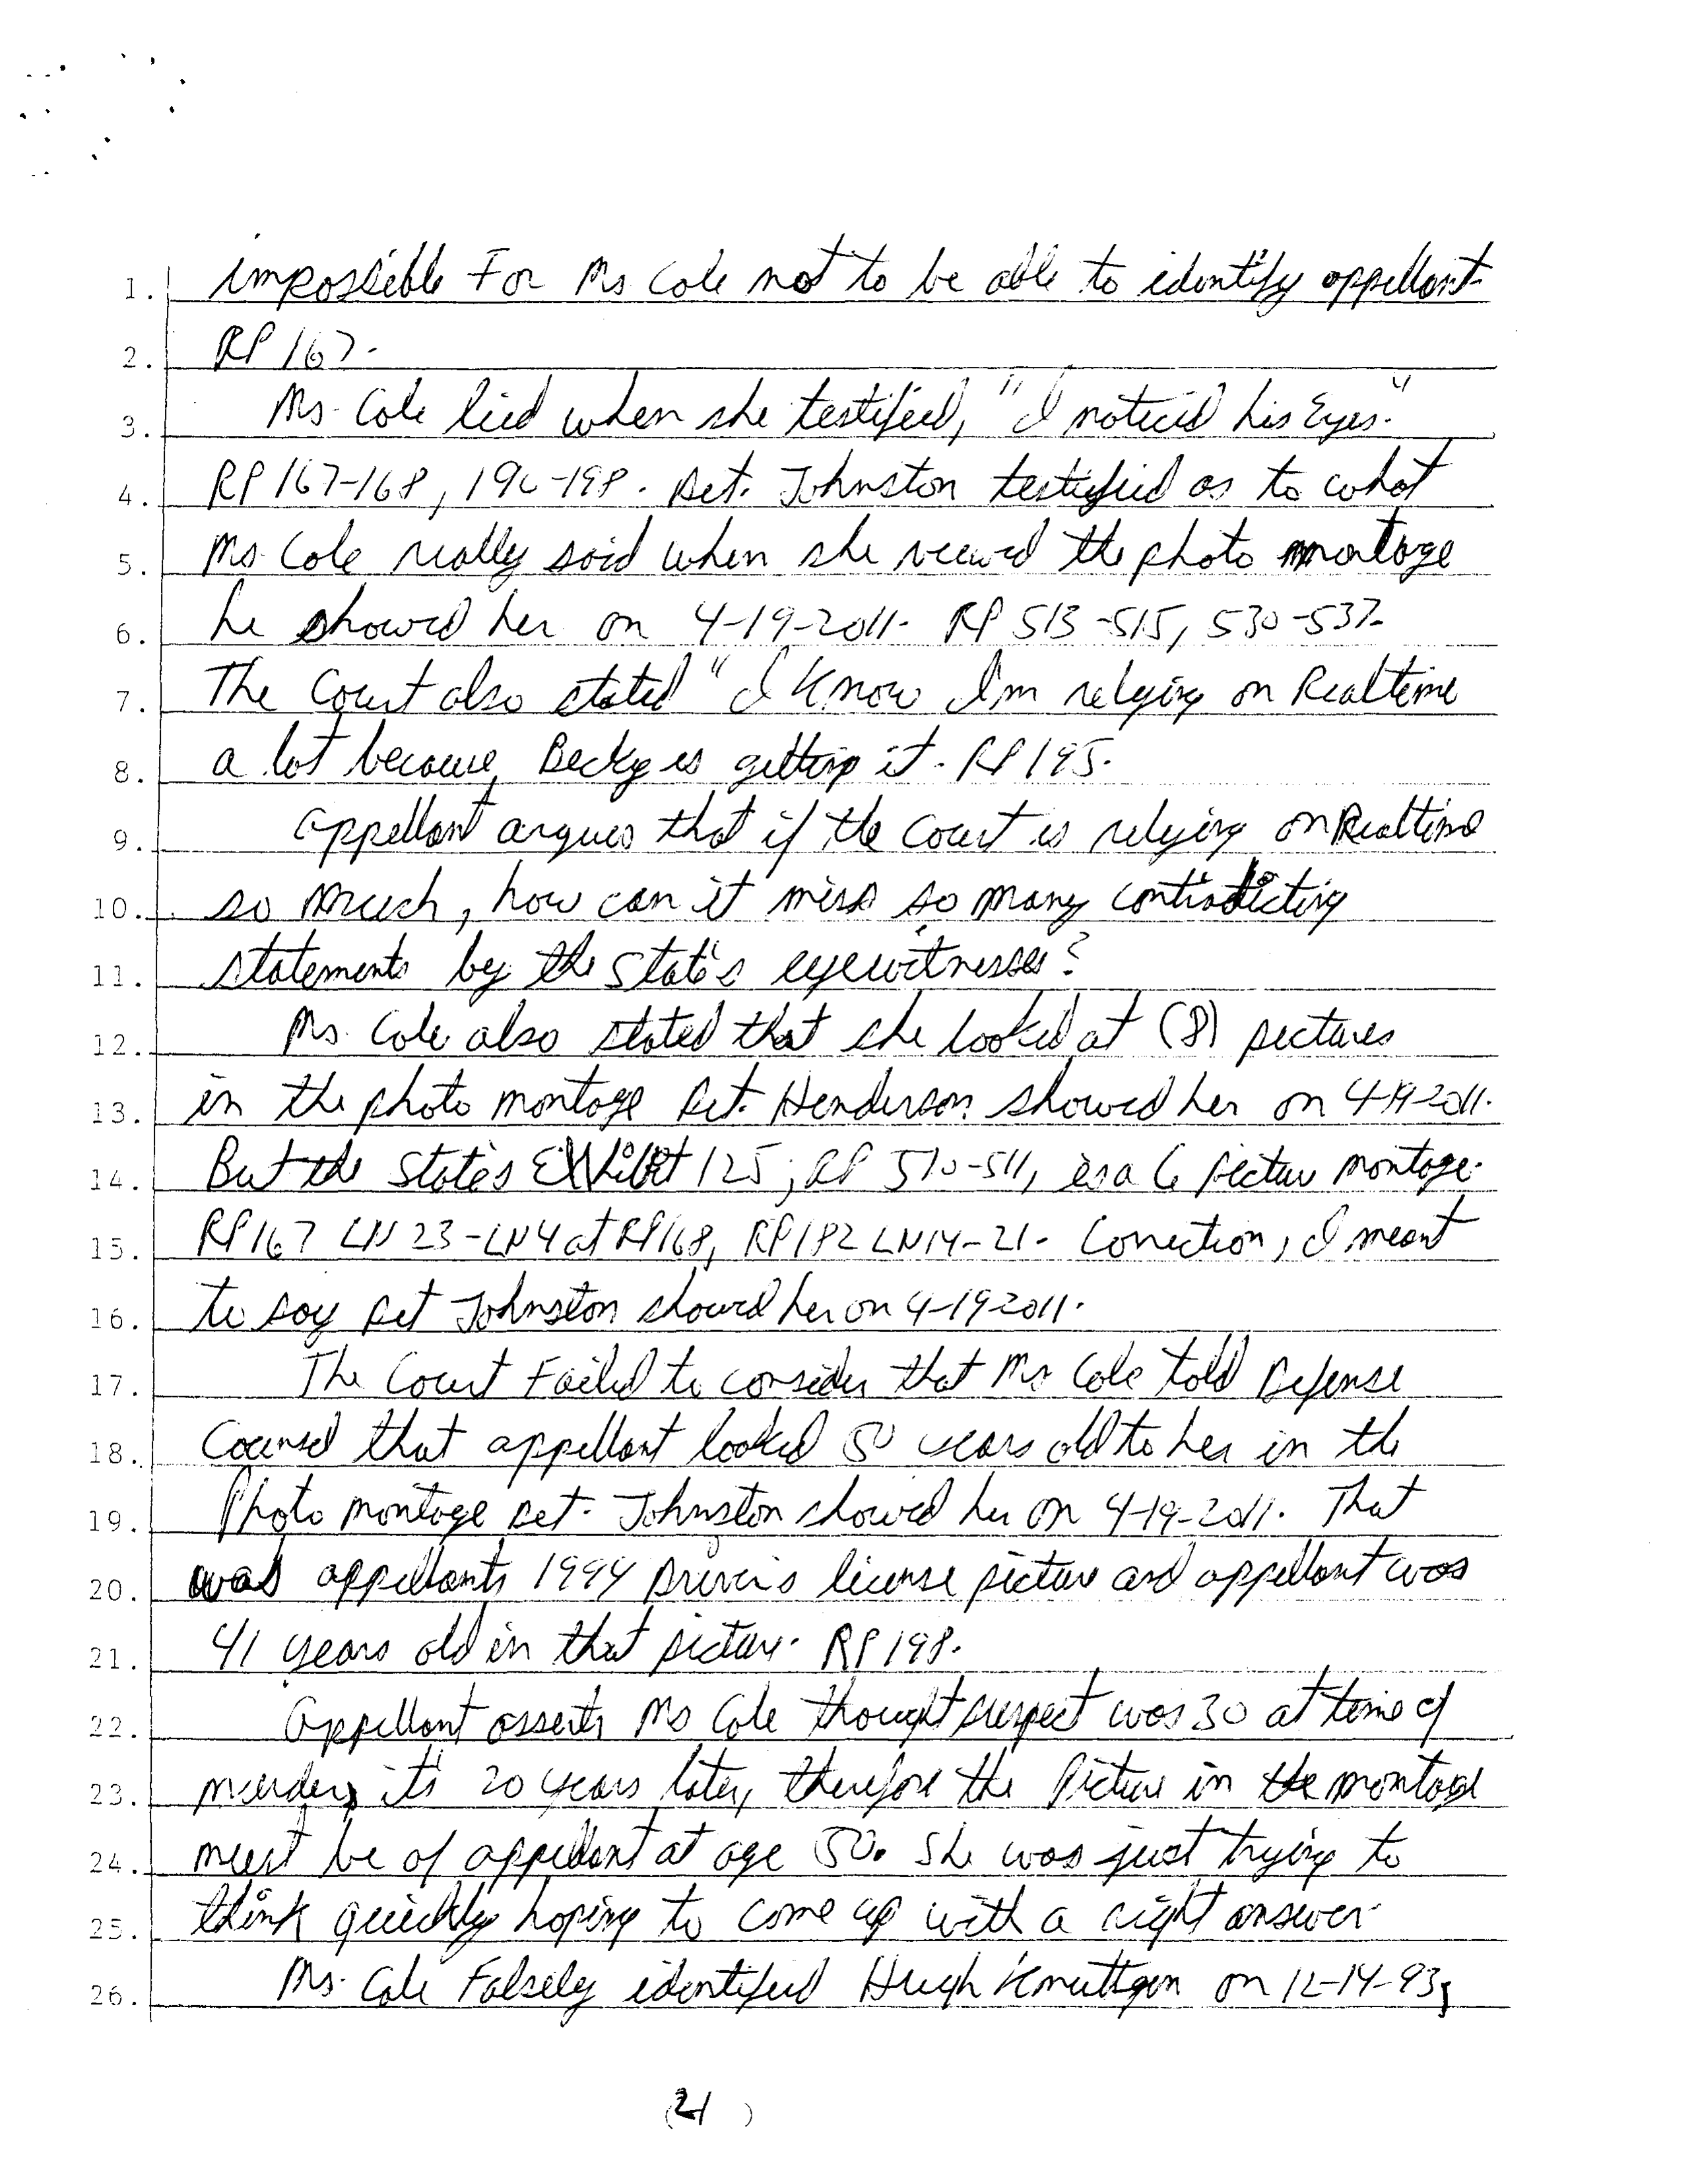 1. impossible For Ms Cole not to be able to identify appellant
2. RP 167.
3. Ms. Cole lied when she testified, "I noticed his Eyes."
4. RP 167-168, 196-198. Det. Johnston testified as to what
5. Ms. Cole really said when she viewed the photo montage
6. he showed her on 4-19-2011. RP 513-515, 530-537.
7. The Court also stated "I Know I'm relying on Realtime
8. a lot because, Becky is getting it. RP 195.
9. Appellant argues that if the Court is relying on Realtime
10. so much, how can it miss so many contradicting
11. statements by the State's eyewitnesses?
12. Ms. Cole also stated that she looked at (8) pictures
13. in the photo montage Det. Henderson showed her on 4-19-2011.
14. But the State's Exhibit 125, RP 510-511, is a 6 picture montage.
15. RP 167 LN 23-LN4 at RP168, RP182 LN14-21. Correction, I meant
16. to say Det Johnston showed her on 4-19-2011.
17. The Court Failed to consider that Ms Cole told Defense
18. Counsel that appellant looked 50 years old to her in the
19. Photo montage Det. Johnston showed her on 4-19-2011. That
20. was appellants 1994 Driver's license picture and appellant was
21. 41 years old in that picture. RP 198.
22. Appellant asserts Ms Cole thought suspect was 30 at time of
23. murder, it's 20 years later, therefore the Picture in the montage
24. must be of appellant at age 50. She was just trying to
25. think quickly hoping to come up with a right answer.
26. Ms. Cole Falsely identified Hugh Knuttgen on 12-14-93;
(21)